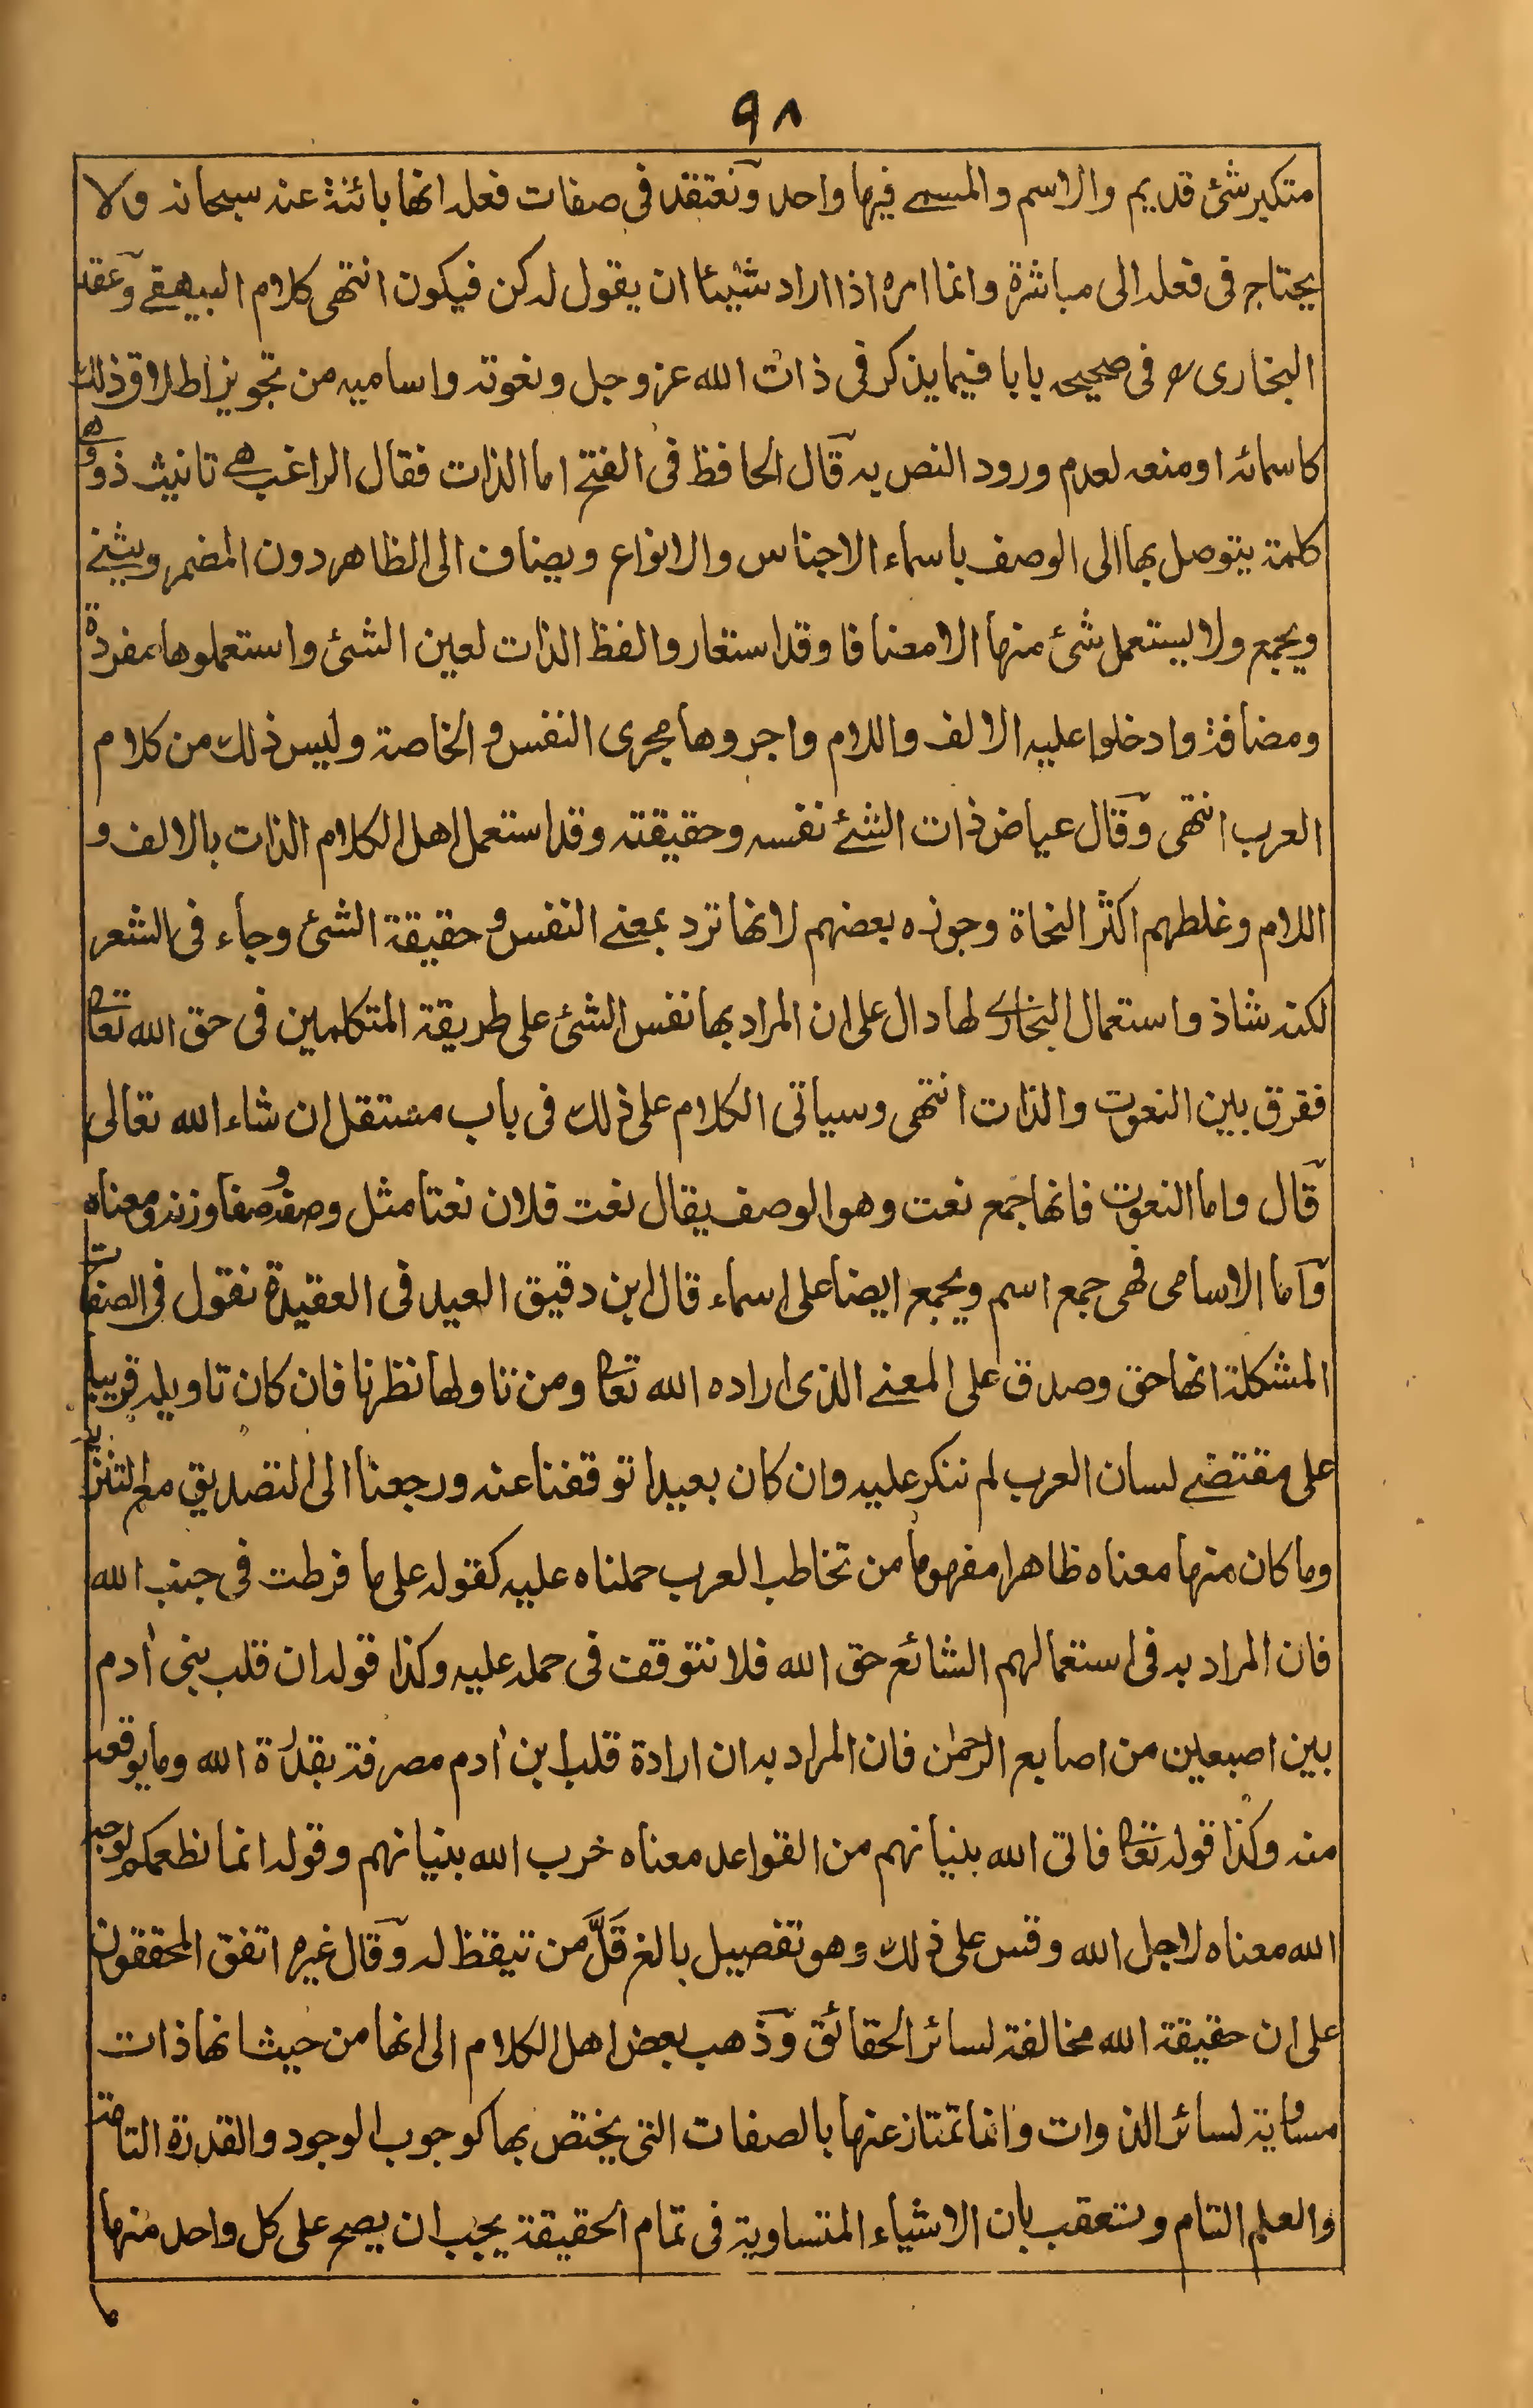 ٩٨
متكبر شئ قديم والاسم والمسمے فيها واحد ونعتقد فى صفات فعله انها بائنة عنه سبحانه ولا
يحتاج فى فعله الى مباشرة وانما امره اذا اراد شيئا ان يقول له كن فيكون انتهى كلام البيهقے وعقد
البخارى رح فى صحيحه بابا فيما يذكر فى ذات الله عز وجل ونعوته واساميه من تجويز اطلاق ذلك
كاسمائه او منعه لعدم ورود النص به قال الحافظ فى الفتح اما الذات فقال الراغب هے تانيث ذو وهے
كلمة يتوصل بها الى الوصف باسماء الاجناس والانواع ويضاف الى الظاهر دون المضمر ويثنے
ويجمع ولا يستعمل شئ منها الا مضافا وقد استعاروا لفظ الذات لعين الشئ واستعملوها مفردة
ومضافة وادخلوا عليه الالف واللام واجروها مجرى النفس و الخاصة وليس ذلك من كلام
العرب انتهى وقال عياض ذات الشئے نفسه وحقيقته وقد استعمل اهل الكلام الذات بالالف و
اللام وغلطهم اكثر النحاة وجوزه بعضهم لانها ترد بمعنے النفس و حقيقة الشئ وجاء فى الشعر
لكنه شاذ واستعمال البخارے لها دال على ان المراد بها نفس الشئ على طريقة المتكلمين فى حق الله تعا
ففرق بين النعوت والذات انتهى وسياتى الكلام على ذلك فى باب مستقل ان شاء الله تعالى
قال واما النعوت فانها جمع نعت وهو الوصف يقال نعت فلان نعتا مثل وصفه وصفا وزنه ومعناه
واما الاسامى فهى جمع اسم ويجمع ايضا على اسماء قال ابن دقيق العيد فى العقيدة نقول فى الصفات
المشكلة انها حق وصدق على المعنے الذى اراده الله تعا ومن تناولها نظرنا فان كان تاويله قريبا
على مقتضے لسان العرب لم ننكر عليه وان كان بعيدا توقفنا عنه ورجعنا الى التصديق مع التنزيه
وما كان منها معناه ظاهرا مفهوما من تخاطب العرب حملناه عليه كقوله على ما فرطت فى جنب الله
فان المراد به فى استعمالهم الشائع حق الله فلا نتوقف فى حمله عليه وكذا قوله ان قلب بنى اٰدم
بين اصبعين من اصابع الرحمٰن فان المراد به ان ارادة قلب ابن اٰدم مصرفة بقدرة الله وما يوقعه
منه وكذا قوله تعا فاتى الله بنيانهم من القواعد معناه خرب الله بنيانهم وقوله انما نطعمكم لوجه
الله معناه لاجل الله وقس على ذلك وهو تفصيل بالغ قَلَّ من تيقظ له وقال غيره اتفق المحققون
على ان حقيقة الله مخالفة لسائر الحقائق وذهب بعض اهل الكلام الى انها من حيث انها ذات
مساوية لسائر الذوات وانما تمتاز عنها بالصفات التى يختص بها كوجوب الوجود والقدرة التامة
والعلم التام وتعقب بان الاشياء المتساوية فى تمام الحقيقة يجب ان يصح على كل واحد منها
ما